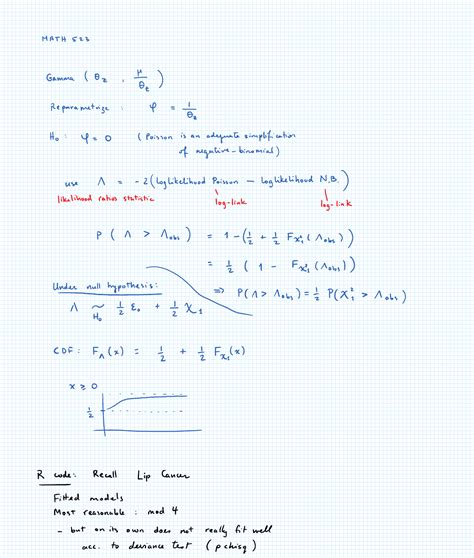 MATH 523
Gamma ( θz , μ/θz )
Reparametrize : φ = 1/θz
H₀ : φ = 0 ( Poisson is an adequate simplification
of negative-binomial )
use Λ = -2(loglikelihood Poisson - loglikelihood N.B.)
likelihood ratios statistic log-link log-link
P ( Λ > Λobs ) = 1 - (1/2 + 1/2 Fχ₁² (Λobs))
= 1/2 ( 1 - Fχ₁² (Λobs))
Under null hypothesis: ⇒ P(Λ > Λobs) = 1/2 P(χ₁² > Λobs)
Λ ~ H₀ 1/2 ε₀ + 1/2 χ₁
CDF: FΛ(x) = 1/2 + 1/2 Fχ₁(x)
x ≥ 0
1/2
R code: Recall Lip Cancer
Fitted models
Most reasonable : mod 4
- but on its own does not really fit well
acc. to deviance test ( pchisq )